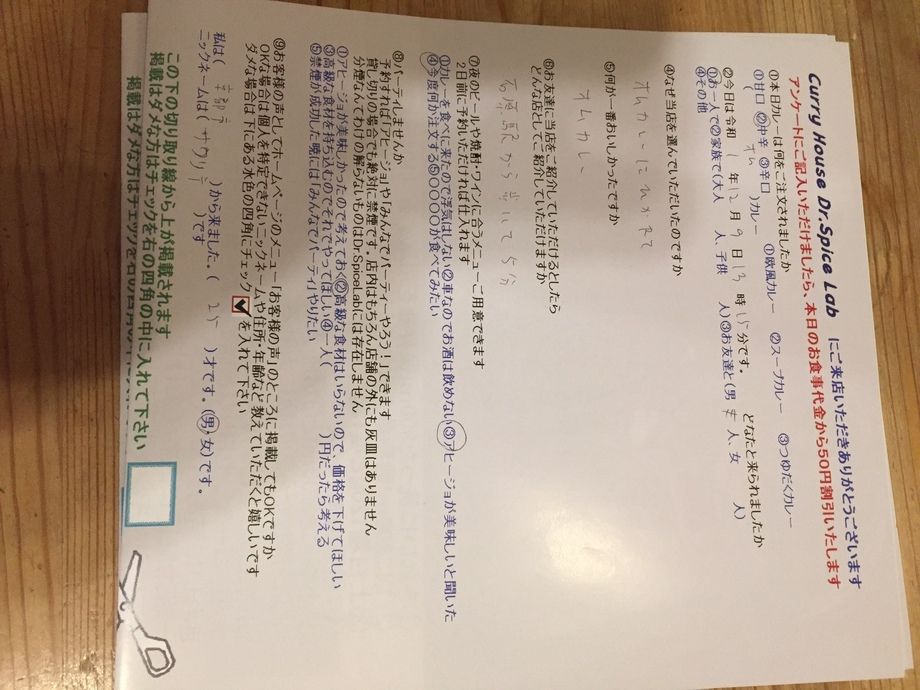 Curry House Dr.Spice Lab にご来店いただきありがとうございます
アンケートにご記入いただけましたら、本日のお食事代金から50円割引いたします
①本日カレーは何をご注文されましたか
①甘口 ②中辛 ③辛口 ①欧風カレー ②スープカレー ③つゆだくカレー
( オム )カレー
②今日は令和 1 年 12 月 9 日 13 時 15 分です。 どなたと来られましたか
①お一人で②家族で(大人 人、子供 人)③お友達と(男 人、女 人)
④その他
④なぜ当店を選んでいただいたのですか
オムカレーにひかれて
⑤何が一番おいしかったですか
オムカレー
⑥お友達に当店をご紹介していただけるとしたら
どんな店としてご紹介していただけますか
駅から歩いて5分
⑦夜のビールや焼酎・ワインに合うメニューご用意できます
2日前に予約いただければ仕入れます
①カレーを食べに来たので浮気はしない②車なのでお酒は飲めない③アヒージョが美味しいと聞いた
④今度何か注文する⑤〇〇〇〇が食べてみたい
⑧パーティしませんか
予約すれば「アヒージョや「みんなでパーティーやろう!」できます
貸し切りの場合でも絶対に禁煙です。店内はもちろん店舗の外にも灰皿はありません
分煙なんてわけの解らないものはDr.SpiceLabには存在しません
①アヒージョが美味しかったので考えておく②高級な食材はいらないので、価格を下げてほしい
③高級な食材を持ち込むのでそれでやってほしい④一人( )円だったら考える
⑤禁煙が成功した暁には「みんなでパーティ」やりたい
⑨お客様の声としてホームページのメニュー「お客様の声」のところに掲載してもOKですか
OKな場合は個人を特定できないニックネームや住所・年齢など教えていただくと嬉しいです
ダメな場合は下にある水色の四角にチェック ✔ を入れて下さい
私は( )から来ました。( 25 )才です。(男・女)です。
ニックネームは( )です
この下の切り取り線から上が掲載されます
掲載はダメな方はチェックを右の四角の中に入れて下さい
掲載はダメな方はチェックを右の四角の中に入れて下さい